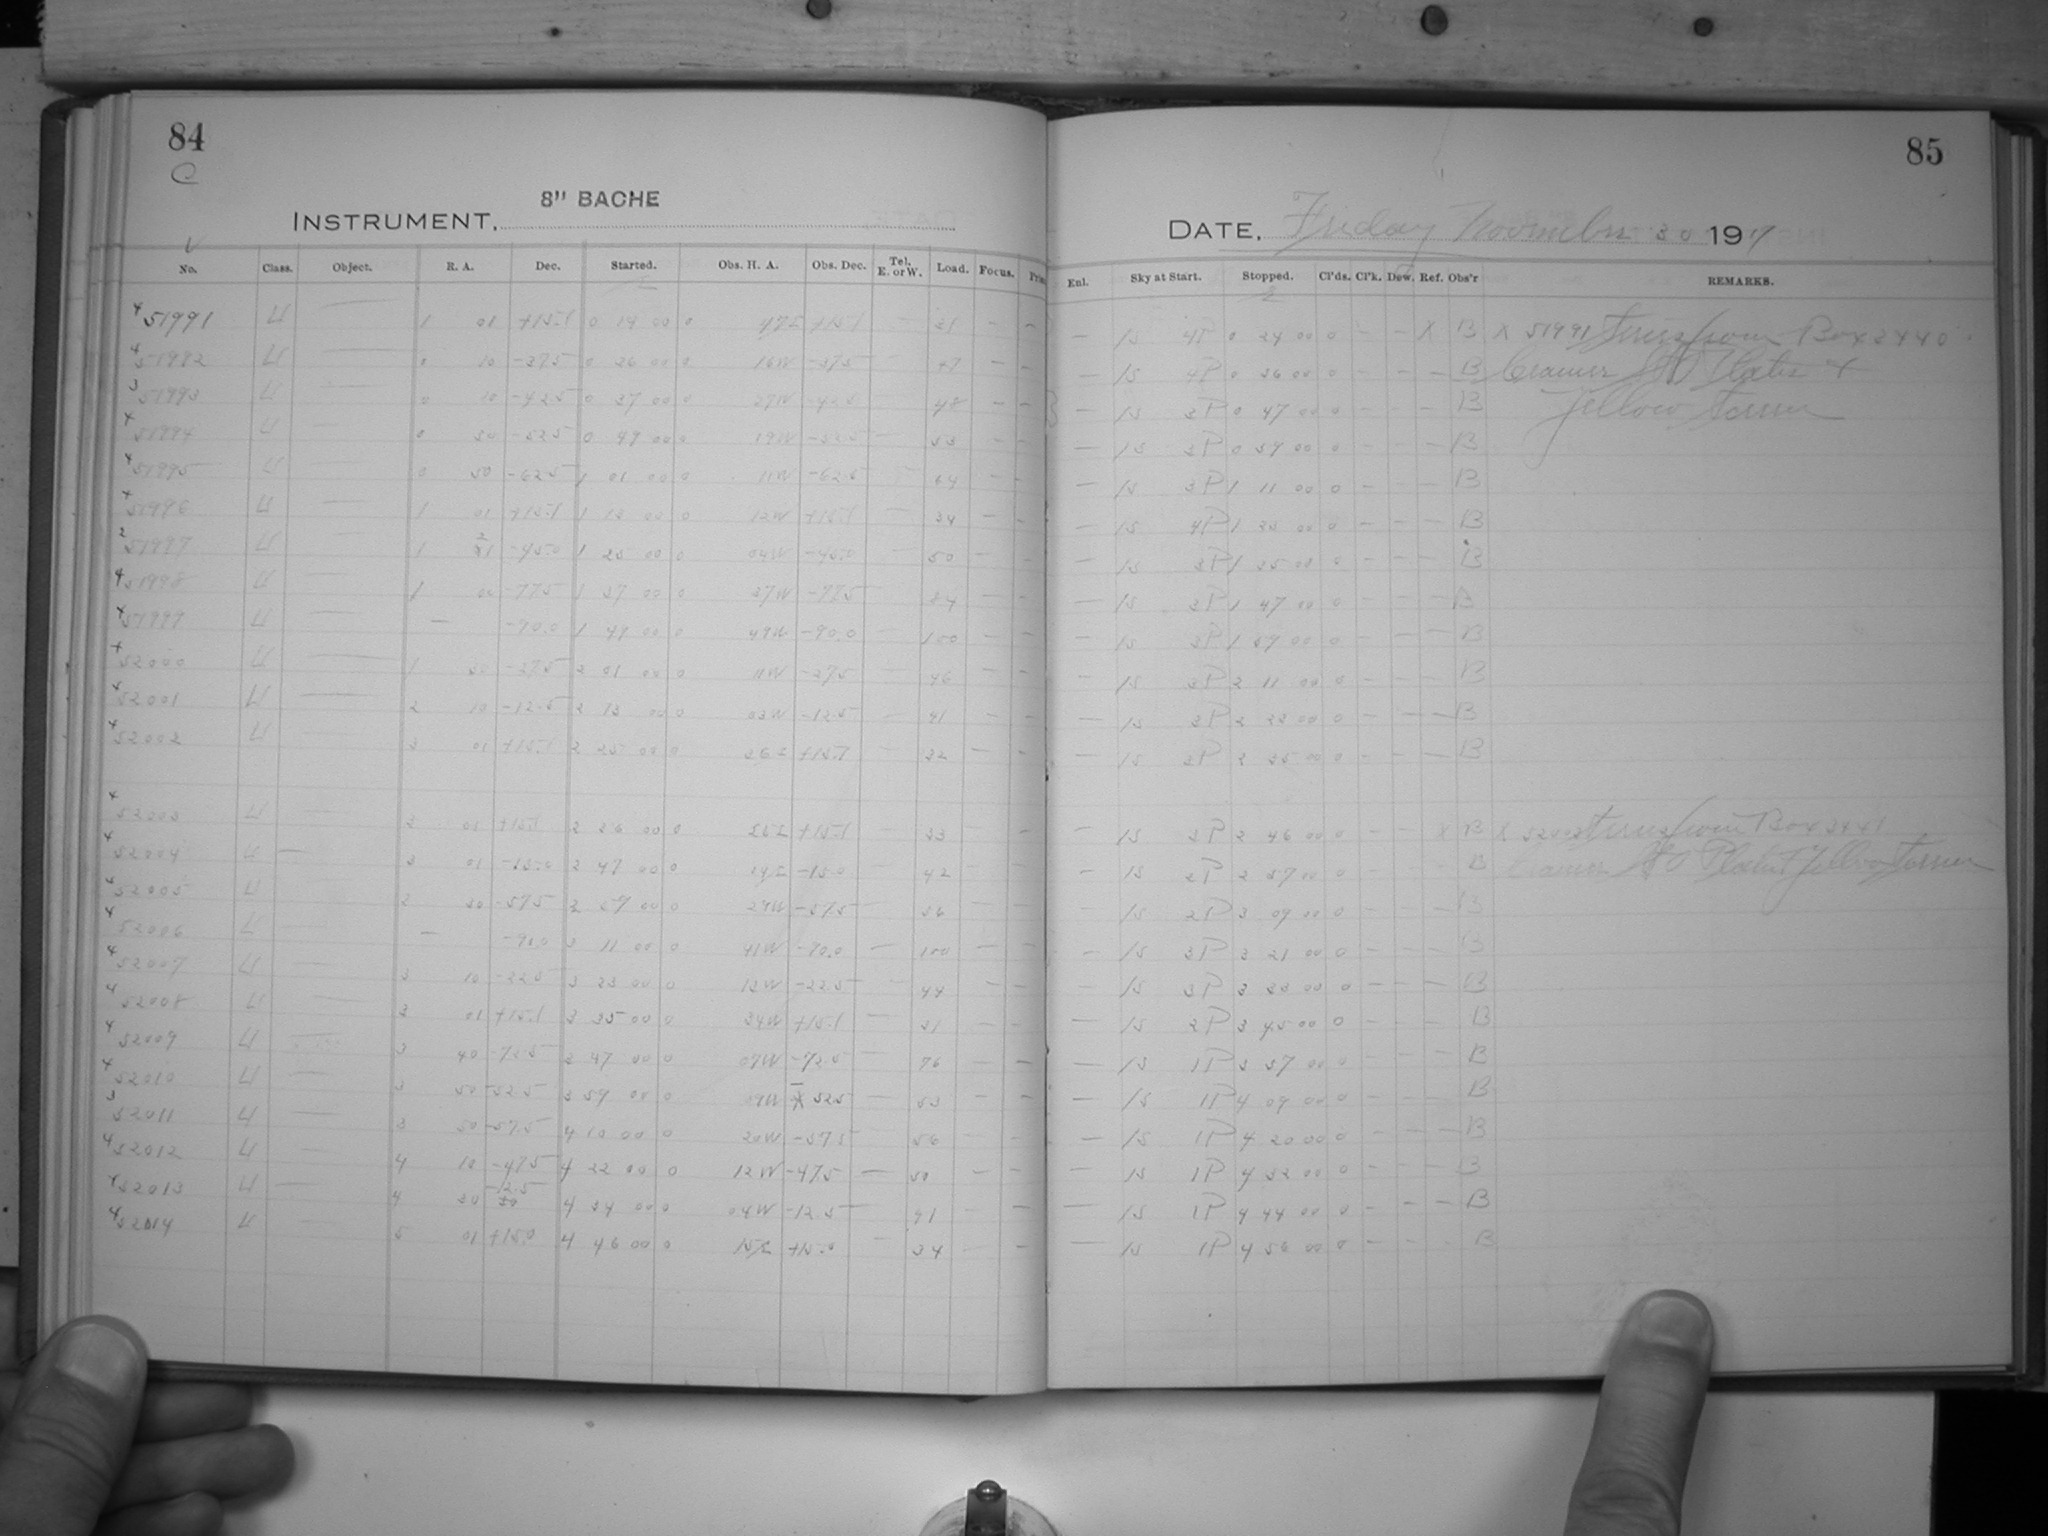 84
C
8" BACHE
INSTRUMENT,
V
No. Class. Object. R. A. Dec. Started. Obs. H. A. Obs. Dec. Tel. E. or W. Load. Focus.
51991 U — 1 01 +15.1 0 14 00 0 47E +15.1 — 31 — —
U — 0 10 -37.5 0 26 00 0 16W -37.5 — 47 — —
51993 U — 0 10 -42.5 0 37 00 0 27W -42.5 48 — —
51994 U — 0 30 -52.5 0 49 00 0 19W — 53 — —
51995 U — 0 50 -62.5 1 01 00 0 11W -62.5 — 64 — —
51996 U — 1 01 +15.1 1 13 00 0 12W +15.1 — 34 — —
51997 U — 1 -45.0 1 25 00 0 04W -45.0 — 50 — —
51998 U — 1 -77.5 1 37 00 0 37W -77.5 — 84 — —
U — — -90.0 1 49 00 0 49W -90.0 — 100 — —
52000 U — 1 50 -37.5 2 01 00 0 11W -37.5 — 46 — —
52001 U — 2 10 -12.5 2 13 00 0 03W -12.5 — 41 — —
52002 U — 3 01 +15.1 2 25 00 0 36E +15.1 — 32 — —
52003 U — 3 01 +15.1 2 36 00 0 25E +15.1 — 33 — —
52004 U — 3 01 -15.0 2 47 00 0 14E -15.0 — 42 — —
52005 U — 2 30 -57.5 2 59 00 0 29W -57.5 — 56 — —
52006 U — — -90.0 3 11 00 0 41W -90.0 — 100 — —
52007 U — 3 10 -22.5 3 23 00 0 13W -22.5 — 44 — —
52008 U — 3 01 +15.1 3 35 00 0 34W +15.1 — 31 — —
52009 U 3 40 -72.5 3 47 00 0 07W -72.5 — 76 — —
52010 U — 3 50 -52.5 3 59 00 0 09W -52.5 — 53 — —
52011 U — 3 50 -57.5 4 10 00 0 20W -57.5 — 56 — —
52012 U — 4 10 -47.5 4 22 00 0 12W -47.5 — 50 — —
52013 U — 4 30 -12.5 4 34 00 0 04W -12.5 — 41 — —
52014 U — 5 01 +15.0 4 46 00 0 15E +15.0 — 34 — —
85
DATE, Friday November 30 1917
Enl. Sky at Start. Stopped. Cl'ds. Cl'k. Dew. Ref. Obs'r REMARKS.
— 15 4P 0 24 00 0 — — X B X 51991 Box 3440
— 15 4P 0 36 00 0 — — — B Cramer Plates +
— 15 3P 0 47 00 0 — — — B Yellow Screen
— 15 3P 0 59 00 0 — — — B
— 15 3P 1 11 00 0 — — — B
— 15 4P 1 23 00 0 — — — B
— 15 3P 1 35 00 0 — — — B
— 15 3P 1 47 00 0 — — — B
— 15 3P 1 59 00 0 — — — B
— 15 3P 2 11 00 0 — — — B
— 15 3P 2 23 00 0 — — — B
— 15 3P 2 35 00 0 — — — B
— 15 3P 2 46 00 0 — — X B X 52003 Box 3441
— 15 2P 2 57 00 0 — — — B Cramer Yellow Screen
— 15 2P 3 09 00 0 — — — B
— 15 3P 3 21 00 0 — — — B
— 15 3P 3 33 00 0 — — — B
— 15 2P 3 45 00 0 — — — B
— 15 1P 3 57 00 0 — — — B
— 15 1P 4 09 00 0 — — — B
— 15 1P 4 20 00 0 — — — B
— 15 1P 4 32 00 0 — — — B
— 15 1P 4 44 00 0 — — — B
— 15 1P 4 56 00 0 — — — B